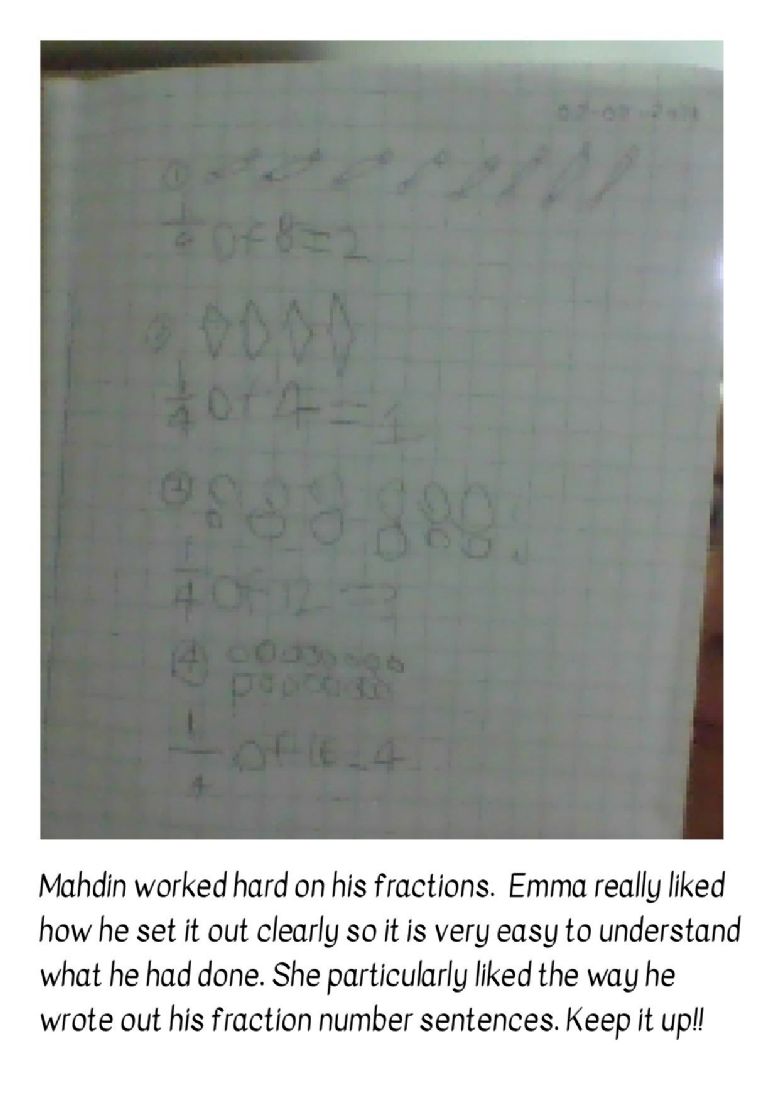 ①
1/4 of 8 = 2
1/4 of 4 = 1
③
1/4 of 12 = 3
④
1/4 of 16 = 4
Mahdin worked hard on his fractions. Emma really liked
how he set it out clearly so it is very easy to understand
what he had done. She particularly liked the way he
wrote out his fraction number sentences. Keep it up!!